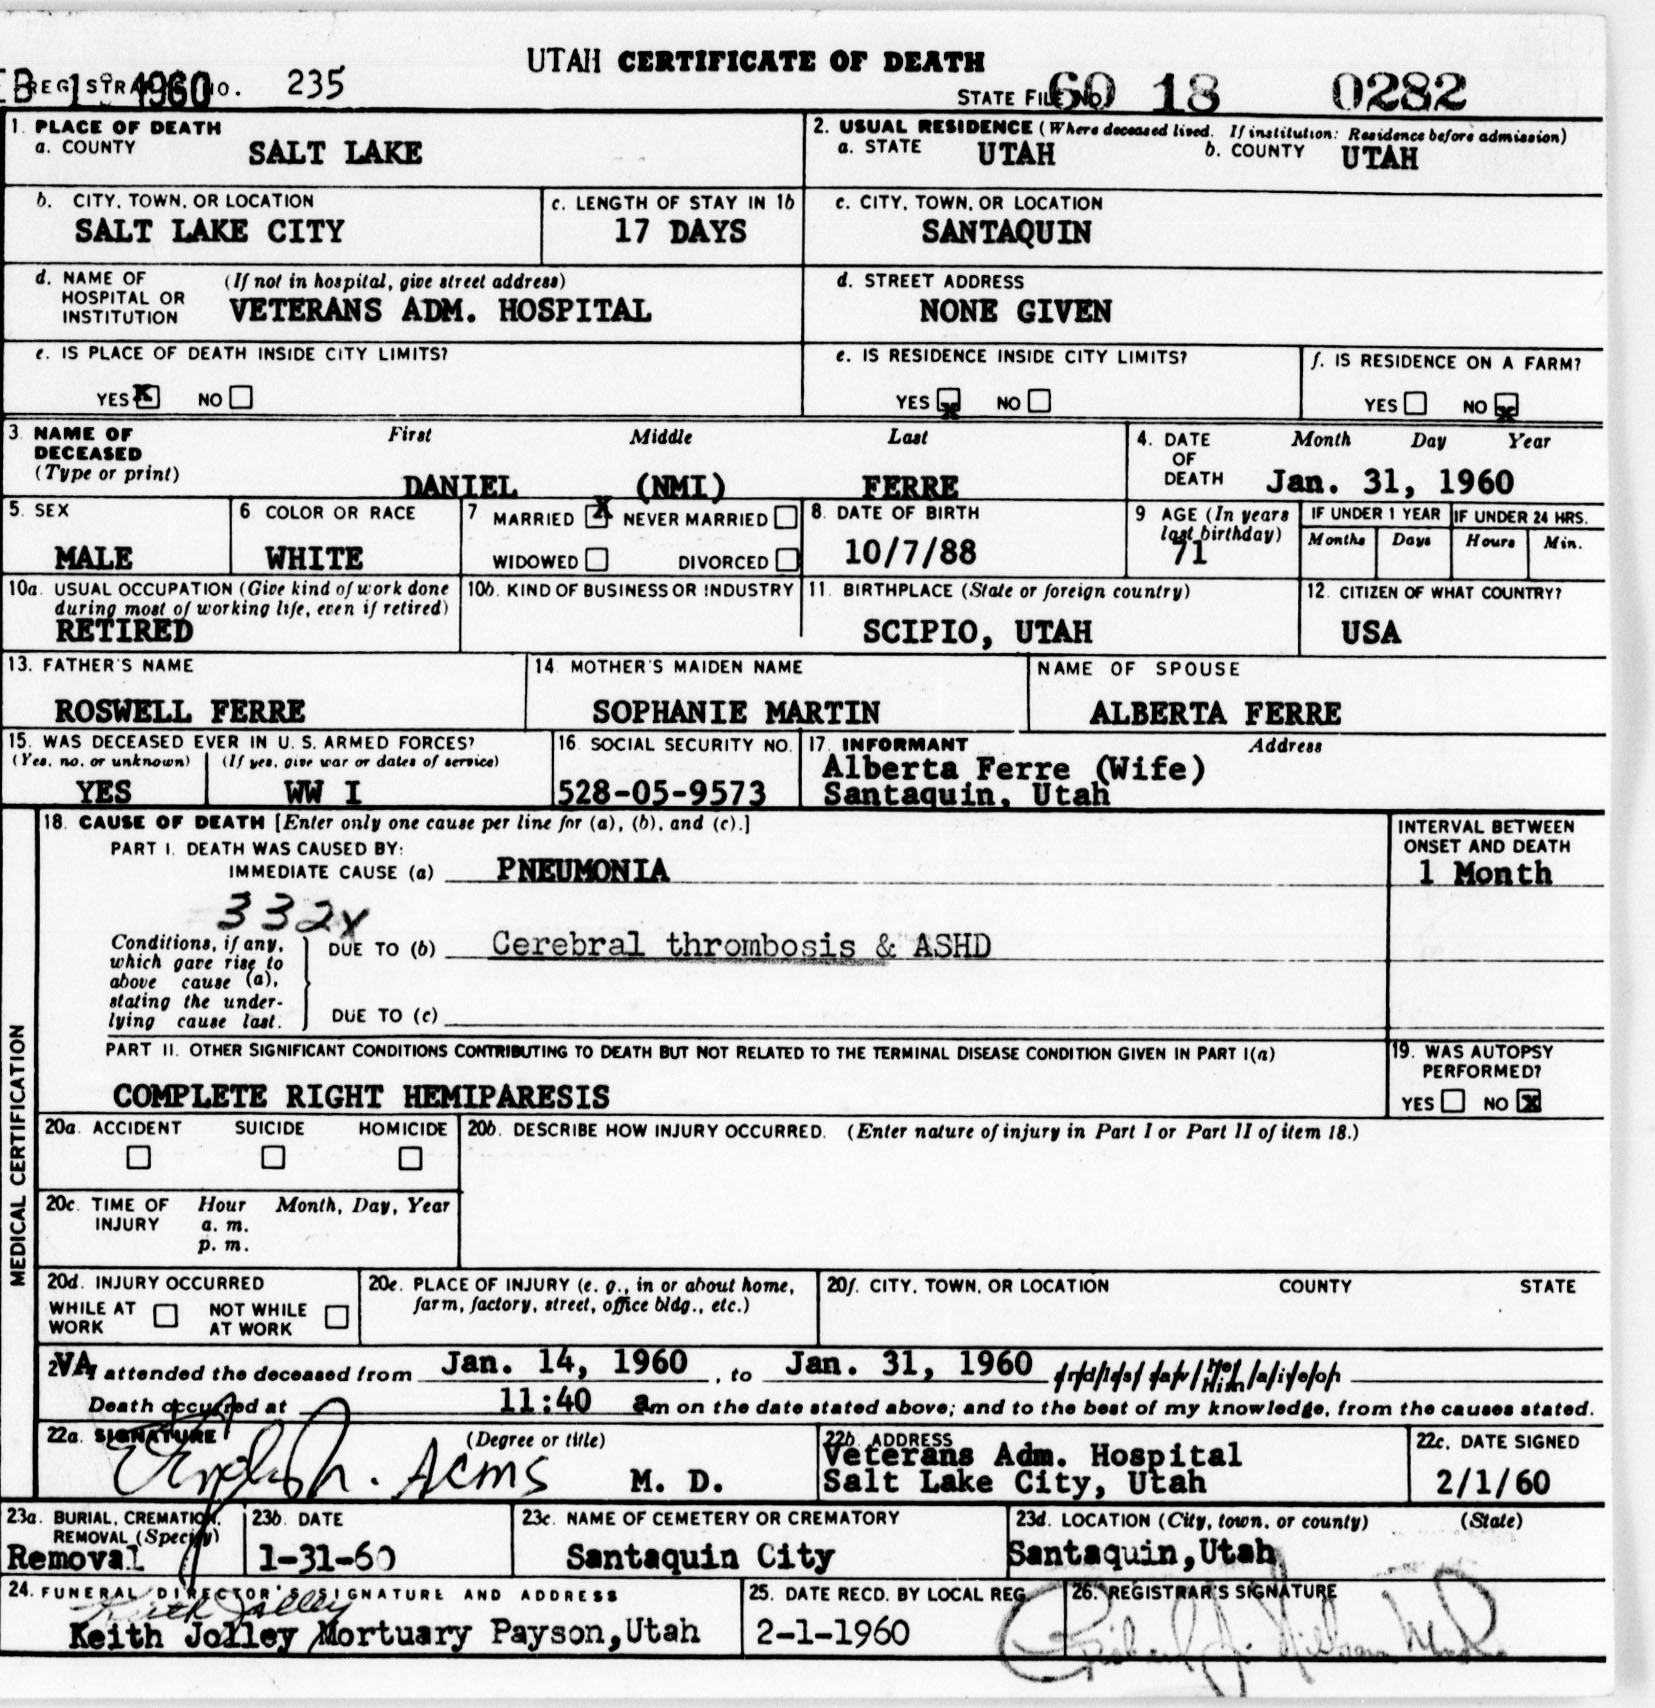 UTAH CERTIFICATE OF DEATH
EB 1 1960
REGISTRAR'S NO. 235
STATE FILE NO. 60 18 0282
1. PLACE OF DEATH
a. COUNTY SALT LAKE
2. USUAL RESIDENCE (Where deceased lived. If institution: Residence before admission)
a. STATE UTAH b. COUNTY UTAH
b. CITY, TOWN, OR LOCATION
SALT LAKE CITY
c. LENGTH OF STAY IN 1b
17 DAYS
c. CITY, TOWN, OR LOCATION
SANTAQUIN
d. NAME OF HOSPITAL OR INSTITUTION (If not in hospital, give street address)
VETERANS ADM. HOSPITAL
d. STREET ADDRESS
NONE GIVEN
e. IS PLACE OF DEATH INSIDE CITY LIMITS?
YES X NO
e. IS RESIDENCE INSIDE CITY LIMITS?
YES X NO
f. IS RESIDENCE ON A FARM?
YES NO X
3. NAME OF DECEASED (Type or print)
First Middle Last
DANIEL (NMI) FERRE
4. DATE OF DEATH
Month Day Year
Jan. 31, 1960
5. SEX
MALE
6. COLOR OR RACE
WHITE
7. MARRIED X NEVER MARRIED
WIDOWED DIVORCED
8. DATE OF BIRTH
10/7/88
9. AGE (In years last birthday)
71
IF UNDER 1 YEAR
Months Days
IF UNDER 24 HRS.
Hours Min.
10a. USUAL OCCUPATION (Give kind of work done during most of working life, even if retired)
RETIRED
10b. KIND OF BUSINESS OR INDUSTRY
11. BIRTHPLACE (State or foreign country)
SCIPIO, UTAH
12. CITIZEN OF WHAT COUNTRY?
USA
13. FATHER'S NAME
ROSWELL FERRE
14. MOTHER'S MAIDEN NAME
SOPHANIE MARTIN
NAME OF SPOUSE
ALBERTA FERRE
15. WAS DECEASED EVER IN U. S. ARMED FORCES?
(Yes, no, or unknown) (If yes, give war or dates of service)
YES WW I
16. SOCIAL SECURITY NO.
528-05-9573
17. INFORMANT Address
Alberta Ferre (Wife)
Santaquin, Utah
MEDICAL CERTIFICATION
18. CAUSE OF DEATH [Enter only one cause per line for (a), (b), and (c).]
PART I. DEATH WAS CAUSED BY:
IMMEDIATE CAUSE (a) PNEUMONIA
INTERVAL BETWEEN ONSET AND DEATH
1 Month
332X
Conditions, if any, which gave rise to above cause (a), stating the underlying cause last.
DUE TO (b) Cerebral thrombosis & ASHD
DUE TO (c)
PART II. OTHER SIGNIFICANT CONDITIONS CONTRIBUTING TO DEATH BUT NOT RELATED TO THE TERMINAL DISEASE CONDITION GIVEN IN PART I(a)
COMPLETE RIGHT HEMIPARESIS
19. WAS AUTOPSY PERFORMED?
YES NO X
20a. ACCIDENT SUICIDE HOMICIDE
20b. DESCRIBE HOW INJURY OCCURRED. (Enter nature of injury in Part I or Part II of item 18.)
20c. TIME OF INJURY Hour Month, Day, Year
a. m.
p. m.
20d. INJURY OCCURRED
WHILE AT WORK NOT WHILE AT WORK
20e. PLACE OF INJURY (e. g., in or about home, farm, factory, street, office bldg., etc.)
20f. CITY, TOWN, OR LOCATION COUNTY STATE
VA attended the deceased from Jan. 14, 1960, to Jan. 31, 1960 and last saw him alive on
Death occurred at 11:40 am on the date stated above; and to the best of my knowledge, from the causes stated.
22a. SIGNATURE (Degree or title)
M. D.
22b. ADDRESS
Veterans Adm. Hospital
Salt Lake City, Utah
22c. DATE SIGNED
2/1/60
23a. BURIAL, CREMATION, REMOVAL (Specify)
Removal
23b. DATE
1-31-60
23c. NAME OF CEMETERY OR CREMATORY
Santaquin City
23d. LOCATION (City, town, or county) (State)
Santaquin, Utah
24. FUNERAL DIRECTOR'S SIGNATURE AND ADDRESS
Keith Jolley
Keith Jolley Mortuary Payson, Utah
25. DATE RECD. BY LOCAL REG.
2-1-1960
26. REGISTRAR'S SIGNATURE